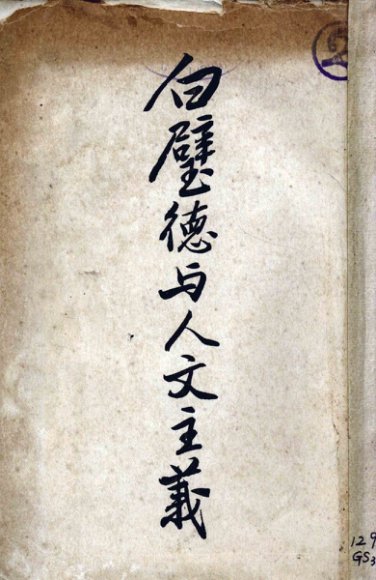 白璧德与人文主義
129
GS3